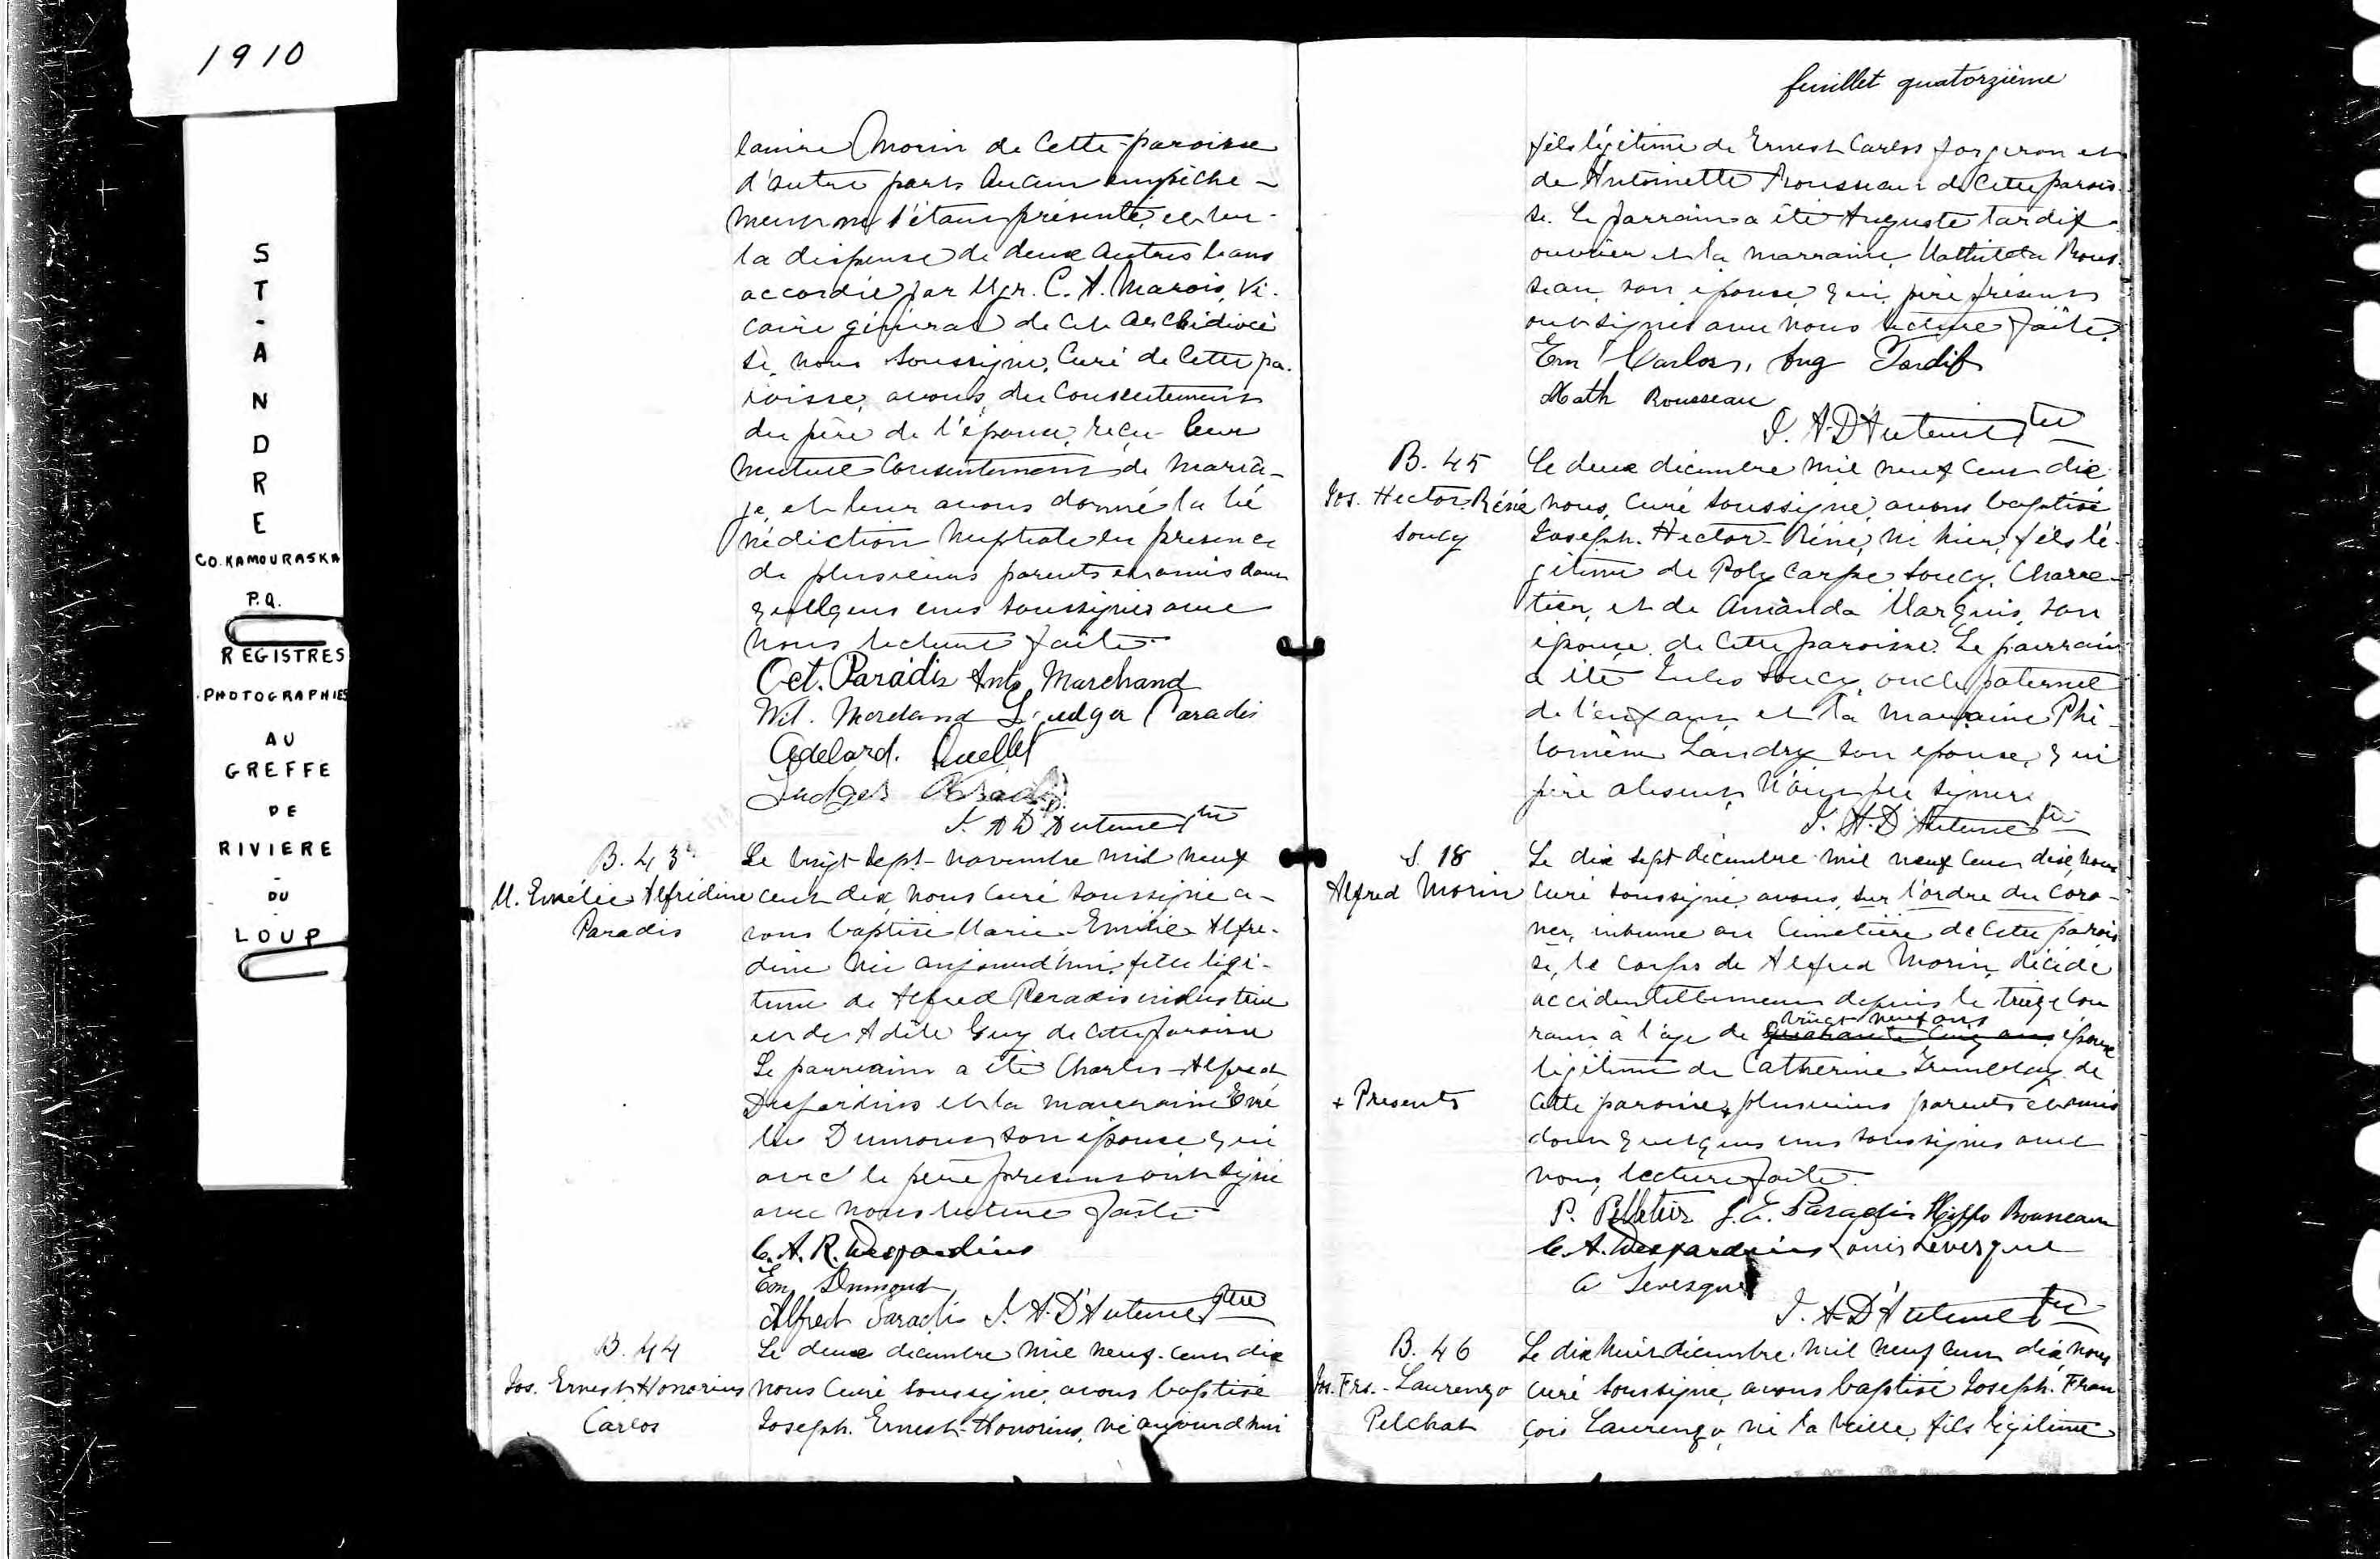 1910
ST-ANDRE
CO. KAMOURASKA
P.Q.
REGISTRES
PHOTOGRAPHIES
AU
GREFFE
DE
RIVIERE
-
DU
LOUP
Morin de cette paroisse
d'autre part. Aucun empêche-
ment ne s'étant présenté, et vu
la dispense de deux autres bans
accordée par Mgr. C. A. Marois, Vi-
caire général de cet Archidiocè
se, nous soussigné, Curé de cette pa-
roisse, avons, du consentement
du père de l'épouse, reçu leur
mutuel consentement de maria-
ge, et leur avons donné la bé
nédiction nuptiale en présence
de plusieurs parents et amis dont
quelques uns soussignés avec
nous lecture faite.
Oct. Paradis Ant. Marchand
Wil. L. udger Paradis
Adelard. Ouellet
Ludger
J. A D'Auteuil Ptre
B. 43
M. Emélie Alfridine
Paradis
Le vingt-sept novembre mil neuf
cent dix, nous Curé soussigné a-
vons baptisé Marie-Emélie Alfri-
dine née aujourd'hui, fille légi-
time de Alfred Paradis industriel
et de Adèle Guy de cette paroisse
Le parrain a été Charles-Alfred
Desjardins et la marraine Emé
lie Dumont son épouse qui
avec le père présent ont signé
avec nous lecture faite.
C. A. R. Desjardins
Em. Dumont
Alfred Paradis J. A. D'Auteuil Ptre
B. 44
Jos. Ernest Honorius
Carlos
Le deux décembre mil neuf-cent dix
nous Curé soussigné avons baptisé
Joseph. Ernest-Honorius, né aujourd'hui
feuillet quatorzième
fils légitime de Ernest Carlos forgeron et
de Antoinette Rousseau de cette parois-
se. Le parrain a été Auguste Tardif
ouvrier et la marraine Rous-
seau son épouse, qui, père présent
ont signé avec nous lecture faite.
Ern Carlos, Aug Tardif
Math Rousseau
J. A. D'Auteuil Ptre
B. 45
Jos. Hector-Réné
Soucy
Le deux décembre mil neuf cent dix
nous, Curé soussigné avons baptisé
Joseph-Hector-Réné, né hier, fils lé-
gitime de Polycarpe Soucy, Charre-
tier, et de Amanda Marquis, son
épouse de cette paroisse. Le parrain
a été Jules Soucy, oncle paternel
de l'enfant et la marraine Phi-
lomène Landry son épouse, qui
père absent n'ont pu signer
J. A. D'Auteuil Ptre
S. 18
Alfred Morin
Le dix sept décembre mil neuf cent dix, nous
Curé soussigné avons, sur l'ordre du Coro-
ner, inhumé au Cimetière de cette parois
se, le corps de Alfred Morin, décédé
accidentellement depuis le treize cou
vingt neuf ans
rant à l'âge de quarante cinq ans époux
légitime de Catherine Tremblay de
+ Presents
cette paroisse + plusieurs parents et amis
dont quelques uns soussignés avec
nous, lecture faite.
P. Pelletier J. E. Paradis Hippo Rousseau
C. A. Desjardins Louis Levesque
A Levesque
J. A. D'Auteuil Ptre
B. 46
Jos. Frs. - Laurenzo
Pelchat
Le dix huit décembre mil neuf cent dix nous
curé soussigné, avons baptisé Joseph. Fran
çois Laurenzo, né la veille, fils légitime